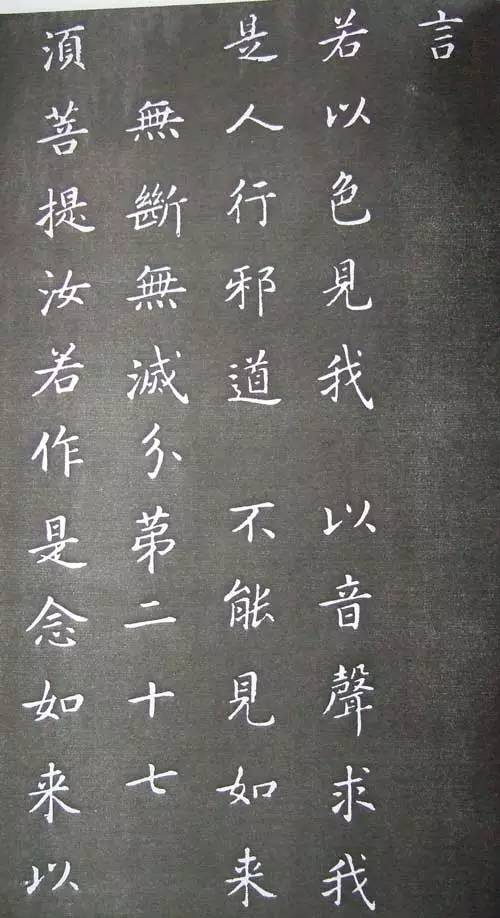 言
若以色見我 以音聲求我
是人行邪道 不能見如来
無斷無滅分第二十七
須菩提汝若作是念如来以